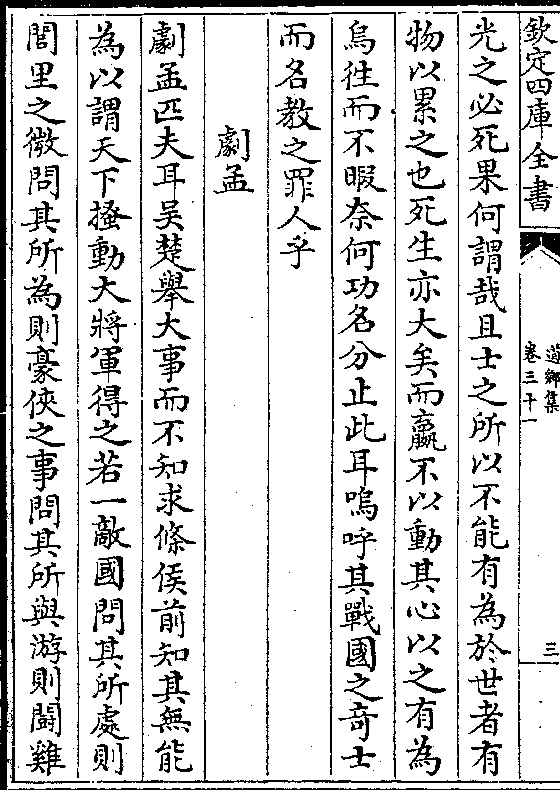 欽定四庫全書
道鄉集
卷三十一
三
光之必死果何謂哉且士之所以不能有為於世者有
物以累之也死生亦大矣而嬴不以動其心以之有為
烏往而不暇奈何功名分止此耳嗚呼其戰國之奇士
而名教之罪人乎
劇孟
劇孟匹夫耳吳楚舉大事而不知求條侯前知其無能
為以謂天下掻動大將軍得之若一敵國問其所處則
閭里之微問其所為則豪俠之事問其所與游則鬪雞